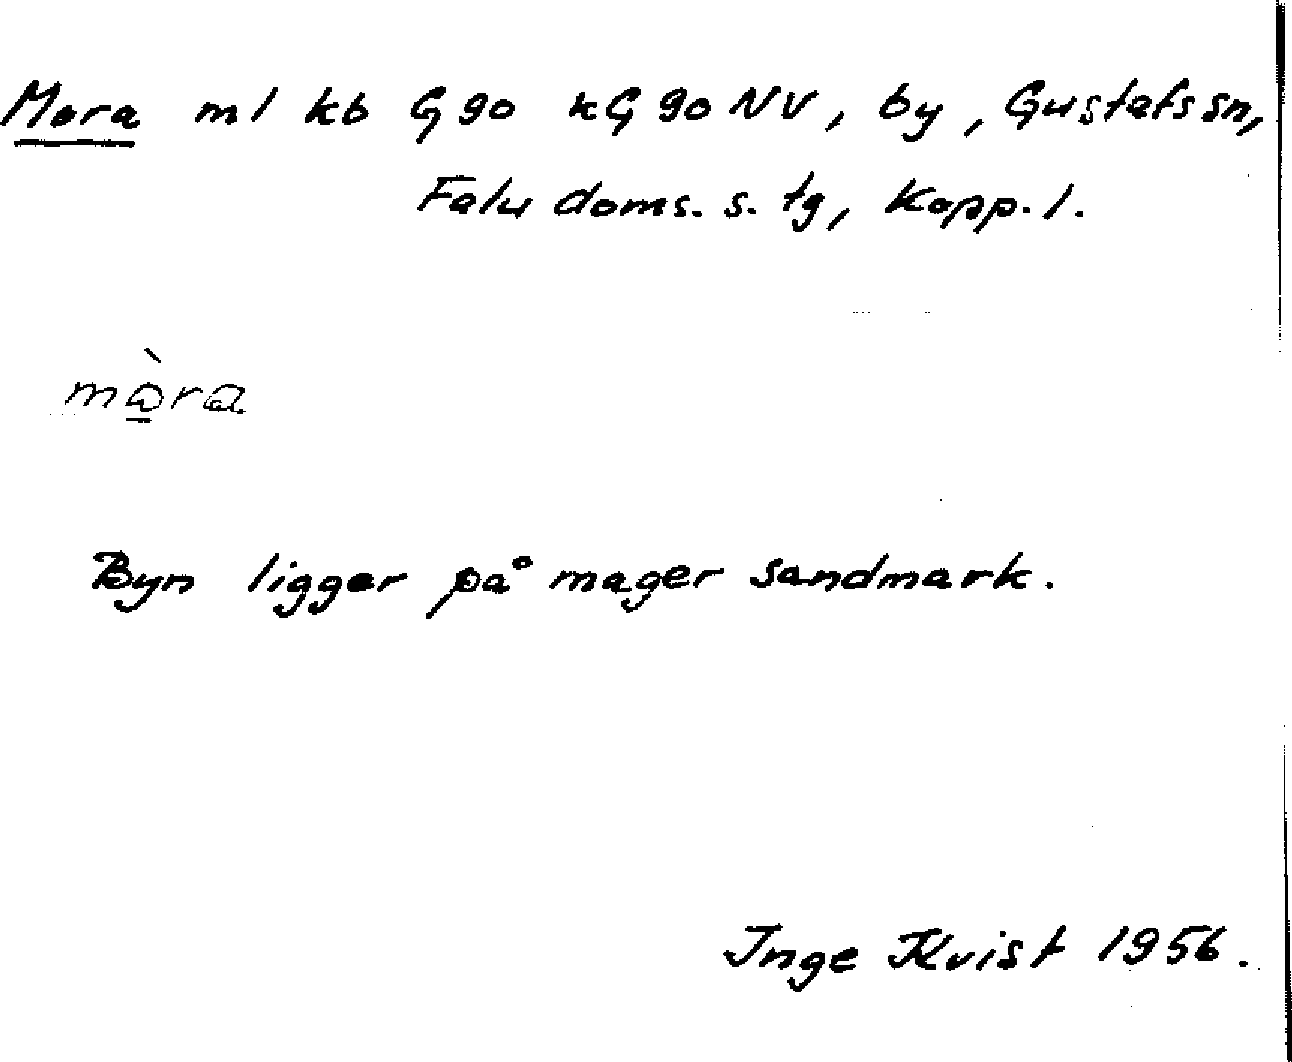 Mora ml kb G 90 kG 90 NV, by, Gustafs sn,
Falu doms. s. tg, Kopp. l.
mòra
Byn ligger på mager sandmark.
Inge Kvist 1956.